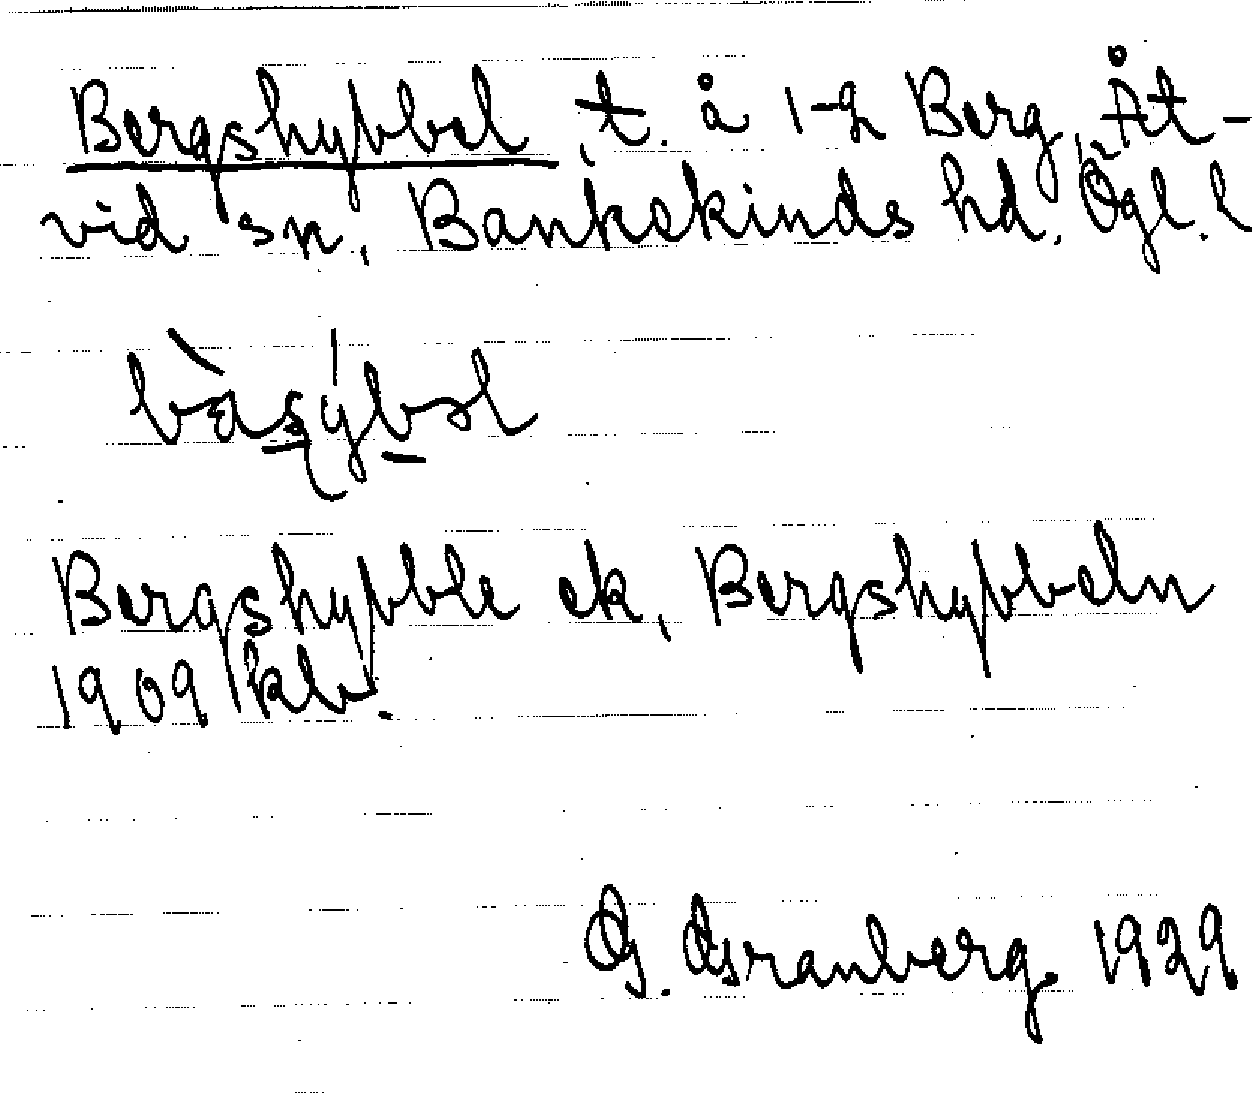 Bergshybbel t. å 1-2 Berg, Åt-
vid sn, Bankekinds hd. Ögl. l
Bergshybble ek, Bergshybbeln
1909 kbr.
G. Granberg 1929